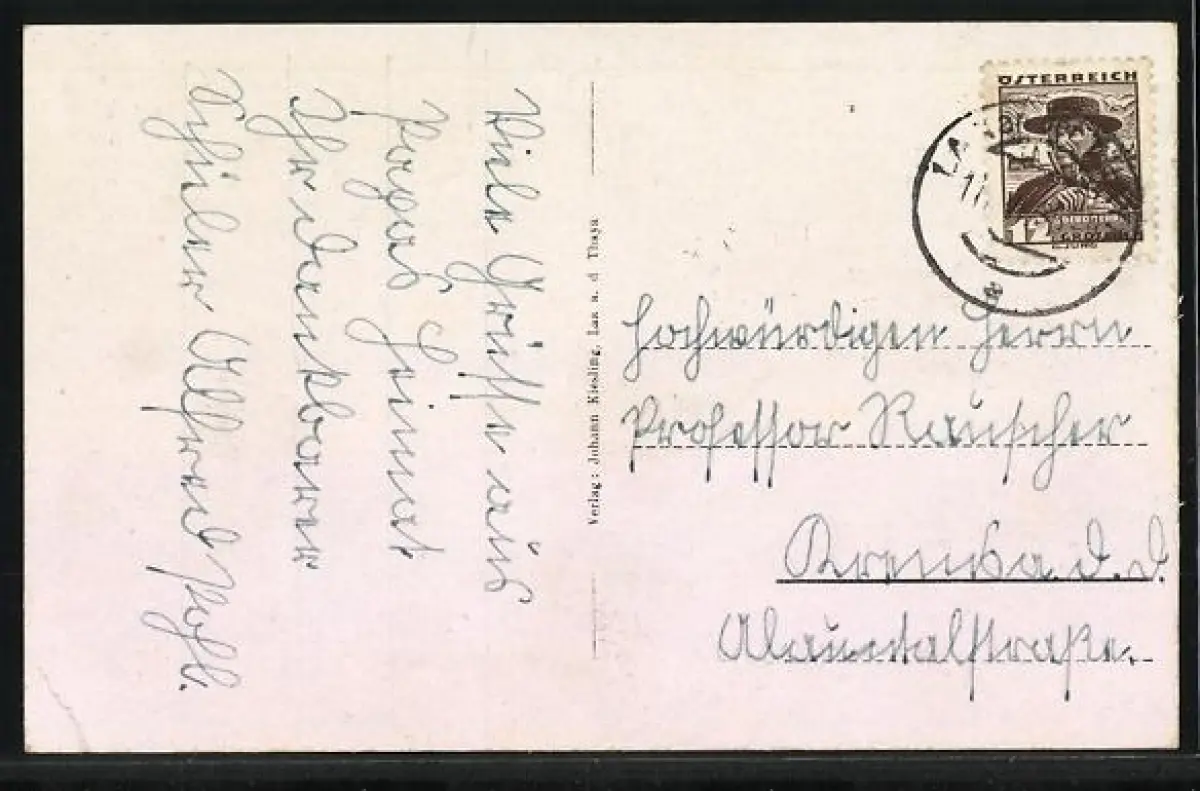 Viele Grüsse aus
Ihr dankbarer
Schüler Alfred Pohl.
Verlag: Johann Kiesling, Laa a. d Thaya
ÖSTERREICH
12
GROSCHEN
Hochwürdigen Herrn
Professor Rauscher
Krems a. d. D.
Alauntalstraße.